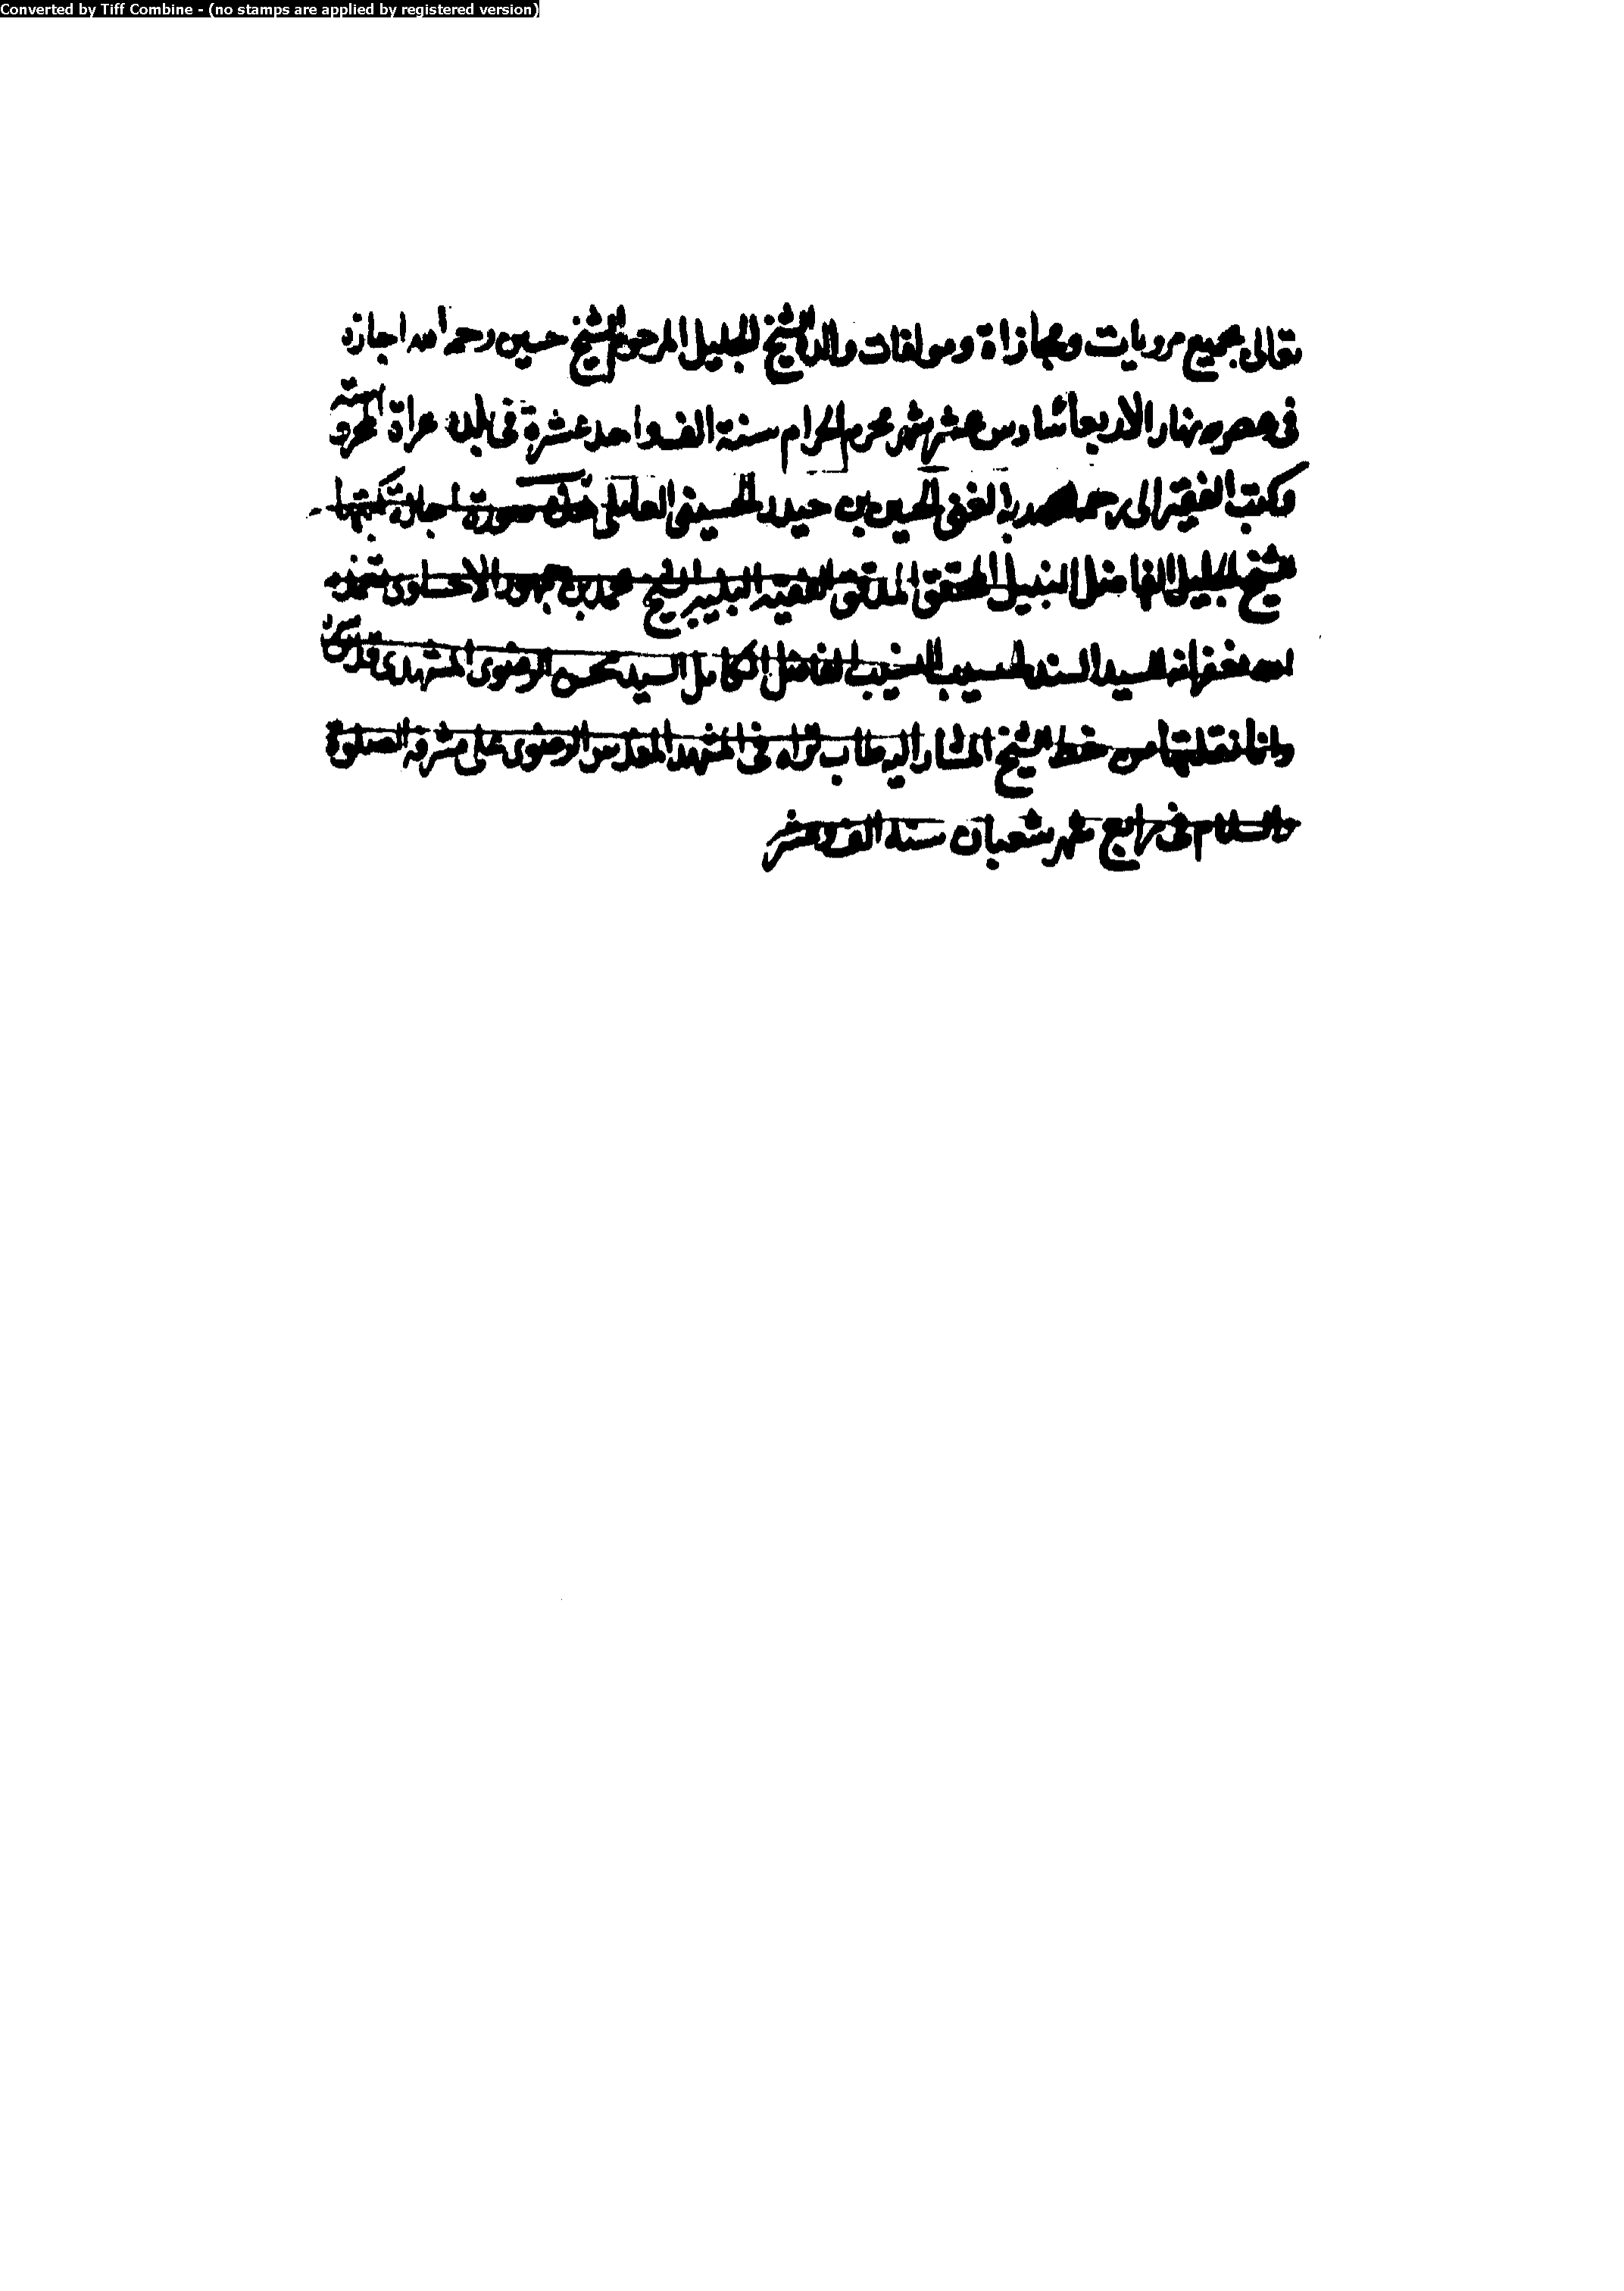 Converted by Tiff Combine - (no stamps are applied by registered version)
تعالى بجميع مرويات ومجازاة ومولفات والده الشيخ الجليل المرحوم الشيخ حسين رحمه الله اجازه
فى عصريه نهار الاربعا سادس عشر شهر محرم الحرام سنة الف واحد عشرة فى بلدة هراة المحروسة
وكتب الفقير الى رحمة ربه الغنى الحسين بن حيدر الحسينى العاملى هذه صورة اجازة كتبها
الشيخ الجليل الفاضل النبيل المحقق المدقق الفقيه النبيه الشيخ محمد بن جمهور الاحساوى تغمده
الله بغفرانه للسيد السند الحسيب النسيب الفاضل الكامل السيد محسن الرضوى المشهدى
وانا نقلتها من خط الشيخ المشار اليه طاب ثراه فى المشهد المقدس الرضوى على مشرفه الصلوة
والسلام فى رابع شهر شعبان سنة الف وعشر